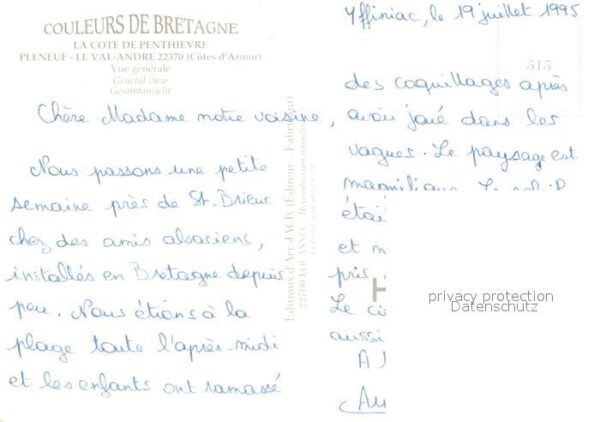 COULEURS DE BRETAGNE
LA COTE DE PENTHIEVRE
PLENEUF - LE VAL-ANDRE 22370 (Côtes d'Armor)
Vue générale
General view
Gesamtansicht
Chère Madame notre voisine,
Nous passons une petite
semaine près de St. Brieuc
chez des amis alsaciens,
installés en Bretagne depuis
peu. Nous étions à la
plage toute l'après-midi
et les enfants ont ramassé
Editions d'Art JACK (Editeur - Fabricant)
22590 Reproduction interdite
Yffiniac, le 19 juillet 1995
515
des coquillages après
avoir joué dans les
vagues. Le paysage est
et
pris
Le
aussi
A
privacy protection
Datenschutz